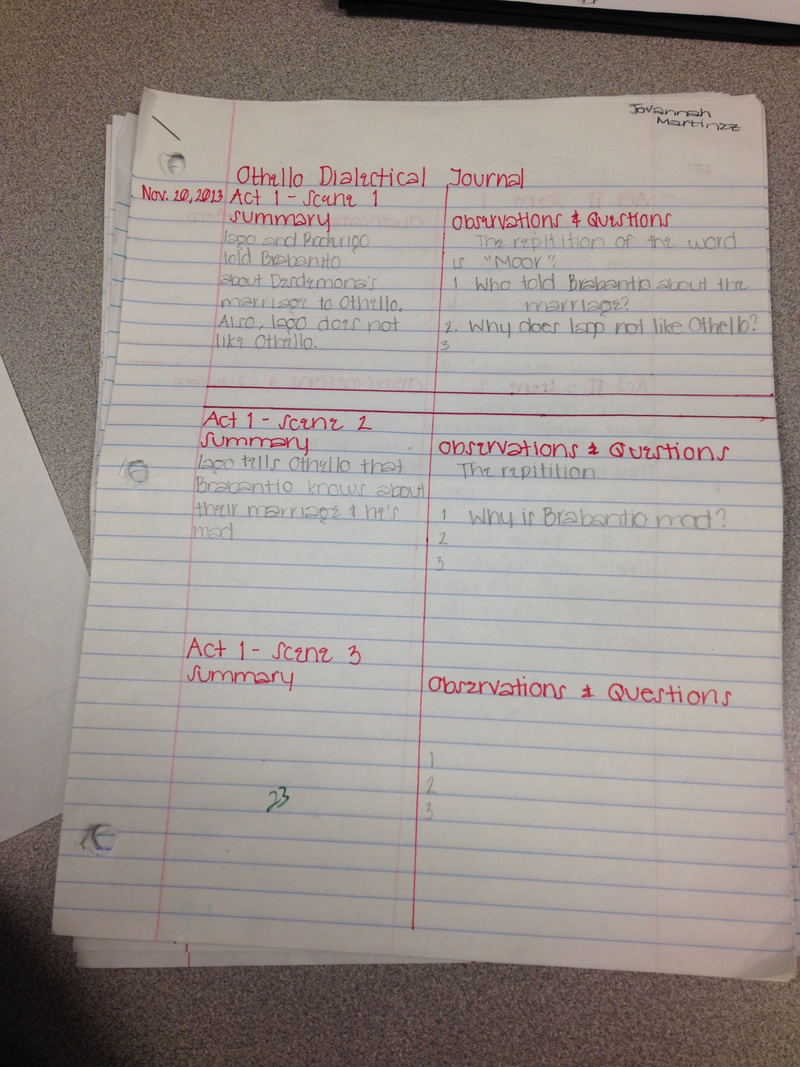 Jovannah
Martinez
Othello Dialectical Journal
Nov. 20, 2013 Act 1 - Scene 1
Summary
Iago and Roderigo
told Brabanito
about Desdemona's
marriage to Othello.
Also, Iago does not
like Othello.
Observations & Questions
The repitition of the word
is "Moor".
1 Who told Brabantio about the
marriage?
2. Why does Iago not like Othello?
3
Act 1 - Scene 2
Summary
Iago tells Othello that
Brabantio knows about
their marriage & he's
mad
Observations & Questions
The repitition
1 Why is Brabantio mad?
2
3
Act 1 - Scene 3
Summary
23
Observations & Questions
1
2
3